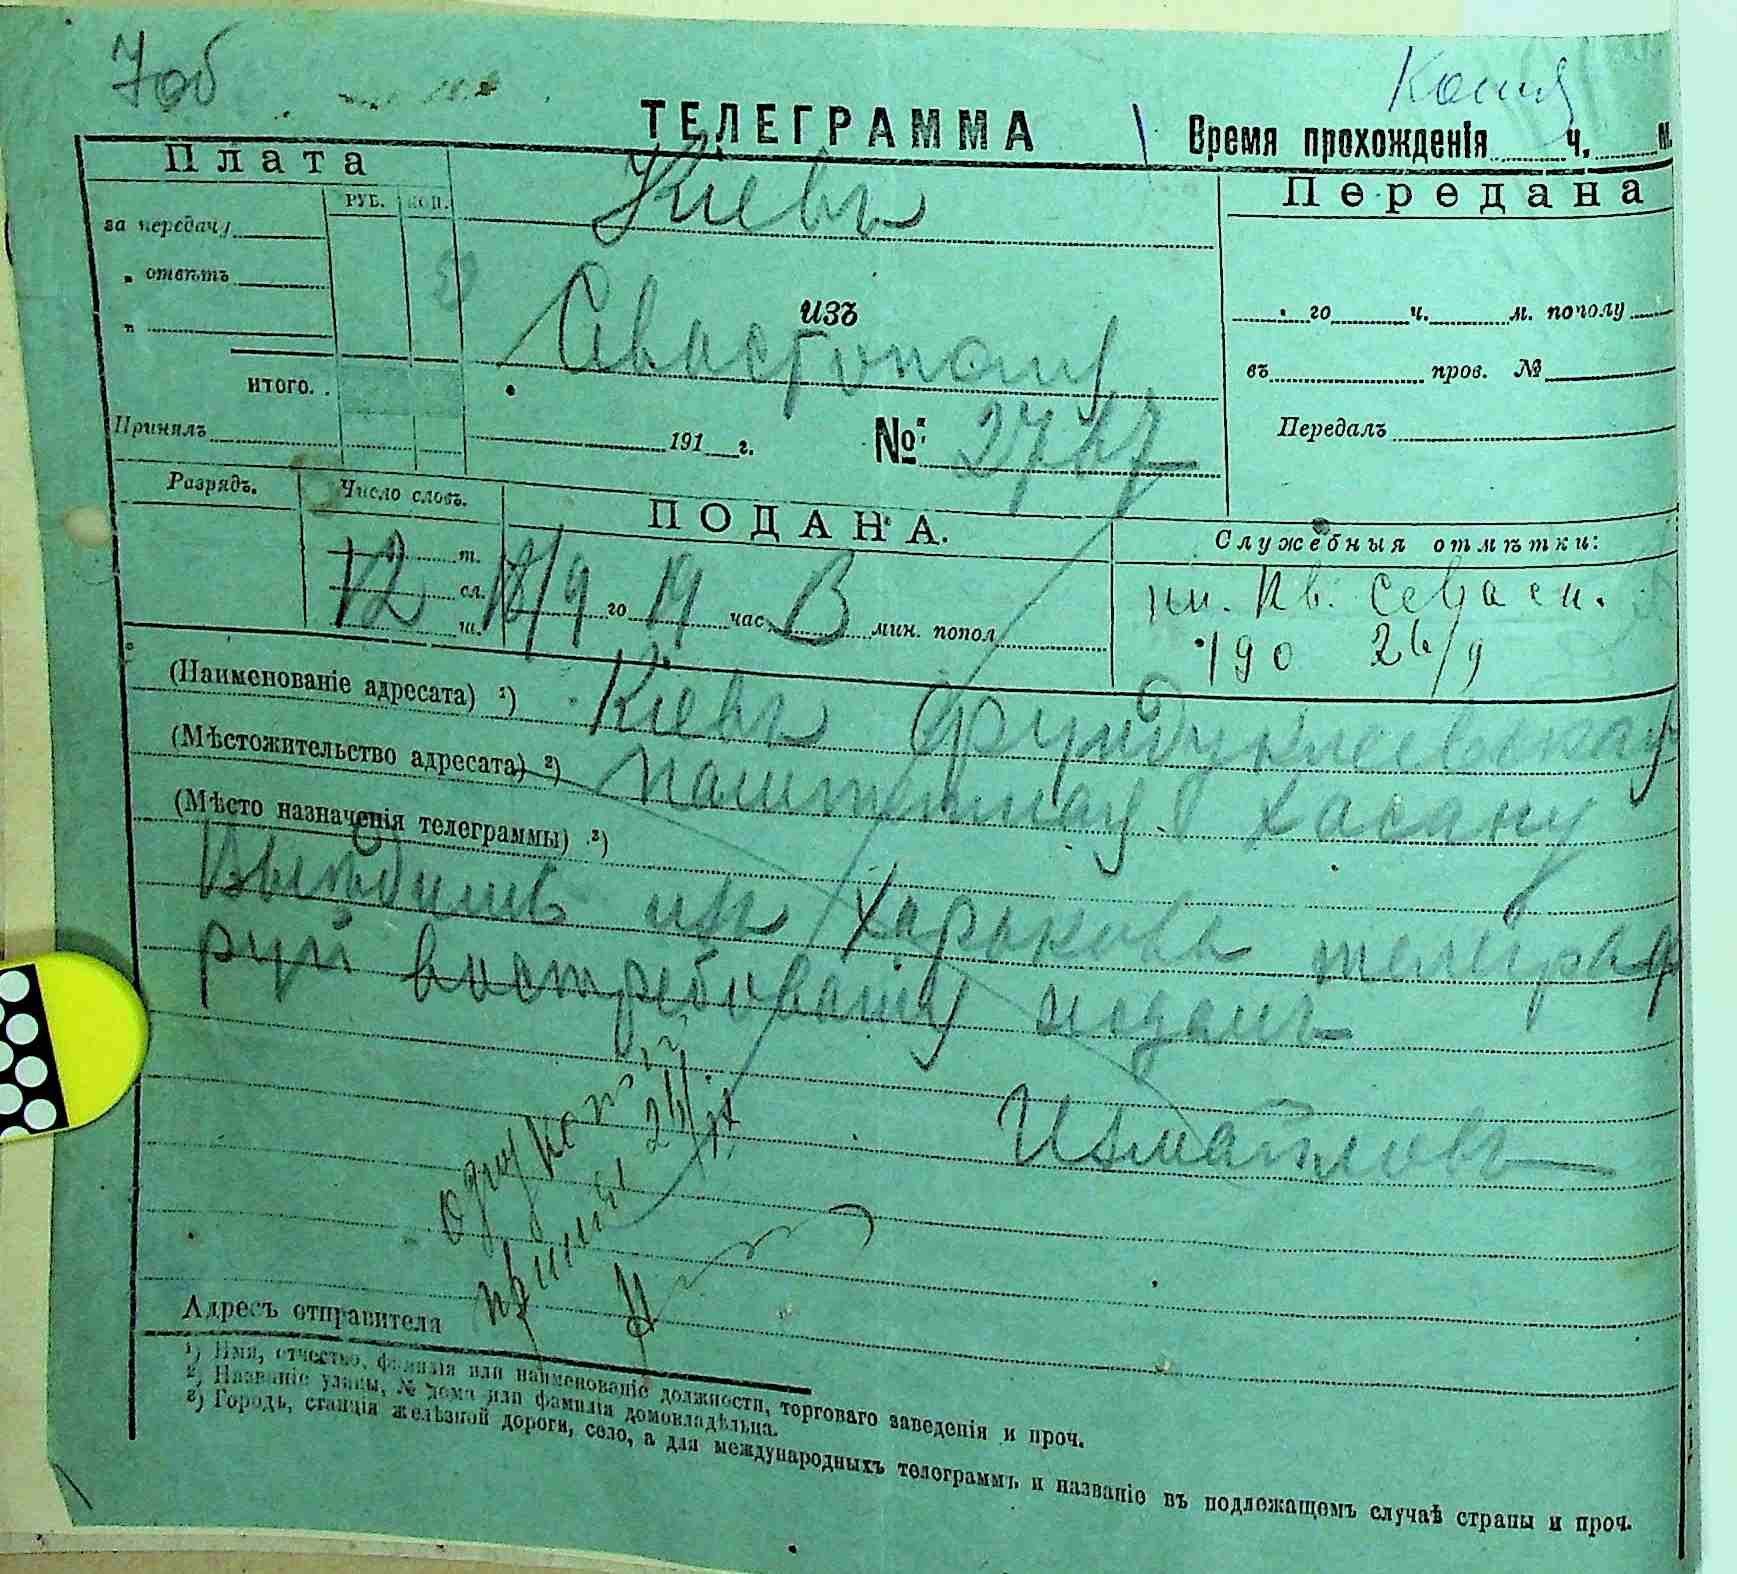 Копия
ТЕЛЕГРАММА
Время прохожденія ч. м.
Плата
РУБ. КОП.
за передачу
„ отвѣтъ
„
итого.
Принялъ
Кіевъ
изъ
Севастополя
191 г. № 2727
Передана
го ч. м. пополу
въ пров. №
Передалъ
Разрядъ.
Число словъ.
12
т.
сл.
ш.
ПОДАНА.
18/9 го 19 час. мин. попол
Служебныя отмѣтки:
190 26/9
(Наименованіе адресата) ¹) Кіевъ Фундуклеевская
(Мѣстожительство адресата) ²) Хасану
(Мѣсто назначенія телеграммы) ³)
Харькова телеграф
руй востребованія
Измайловъ
26/IX
Адресъ отправителя
¹) Имя, отчество, фамилія или наименованіе должности, торговаго заведенія и проч.
²) Названіе улицы, № дома или фамилія домовладѣльца.
³) Городъ, станція желѣзной дороги, село, а для международныхъ телеграммъ и названіе въ подлежащемъ случаѣ страны и проч.